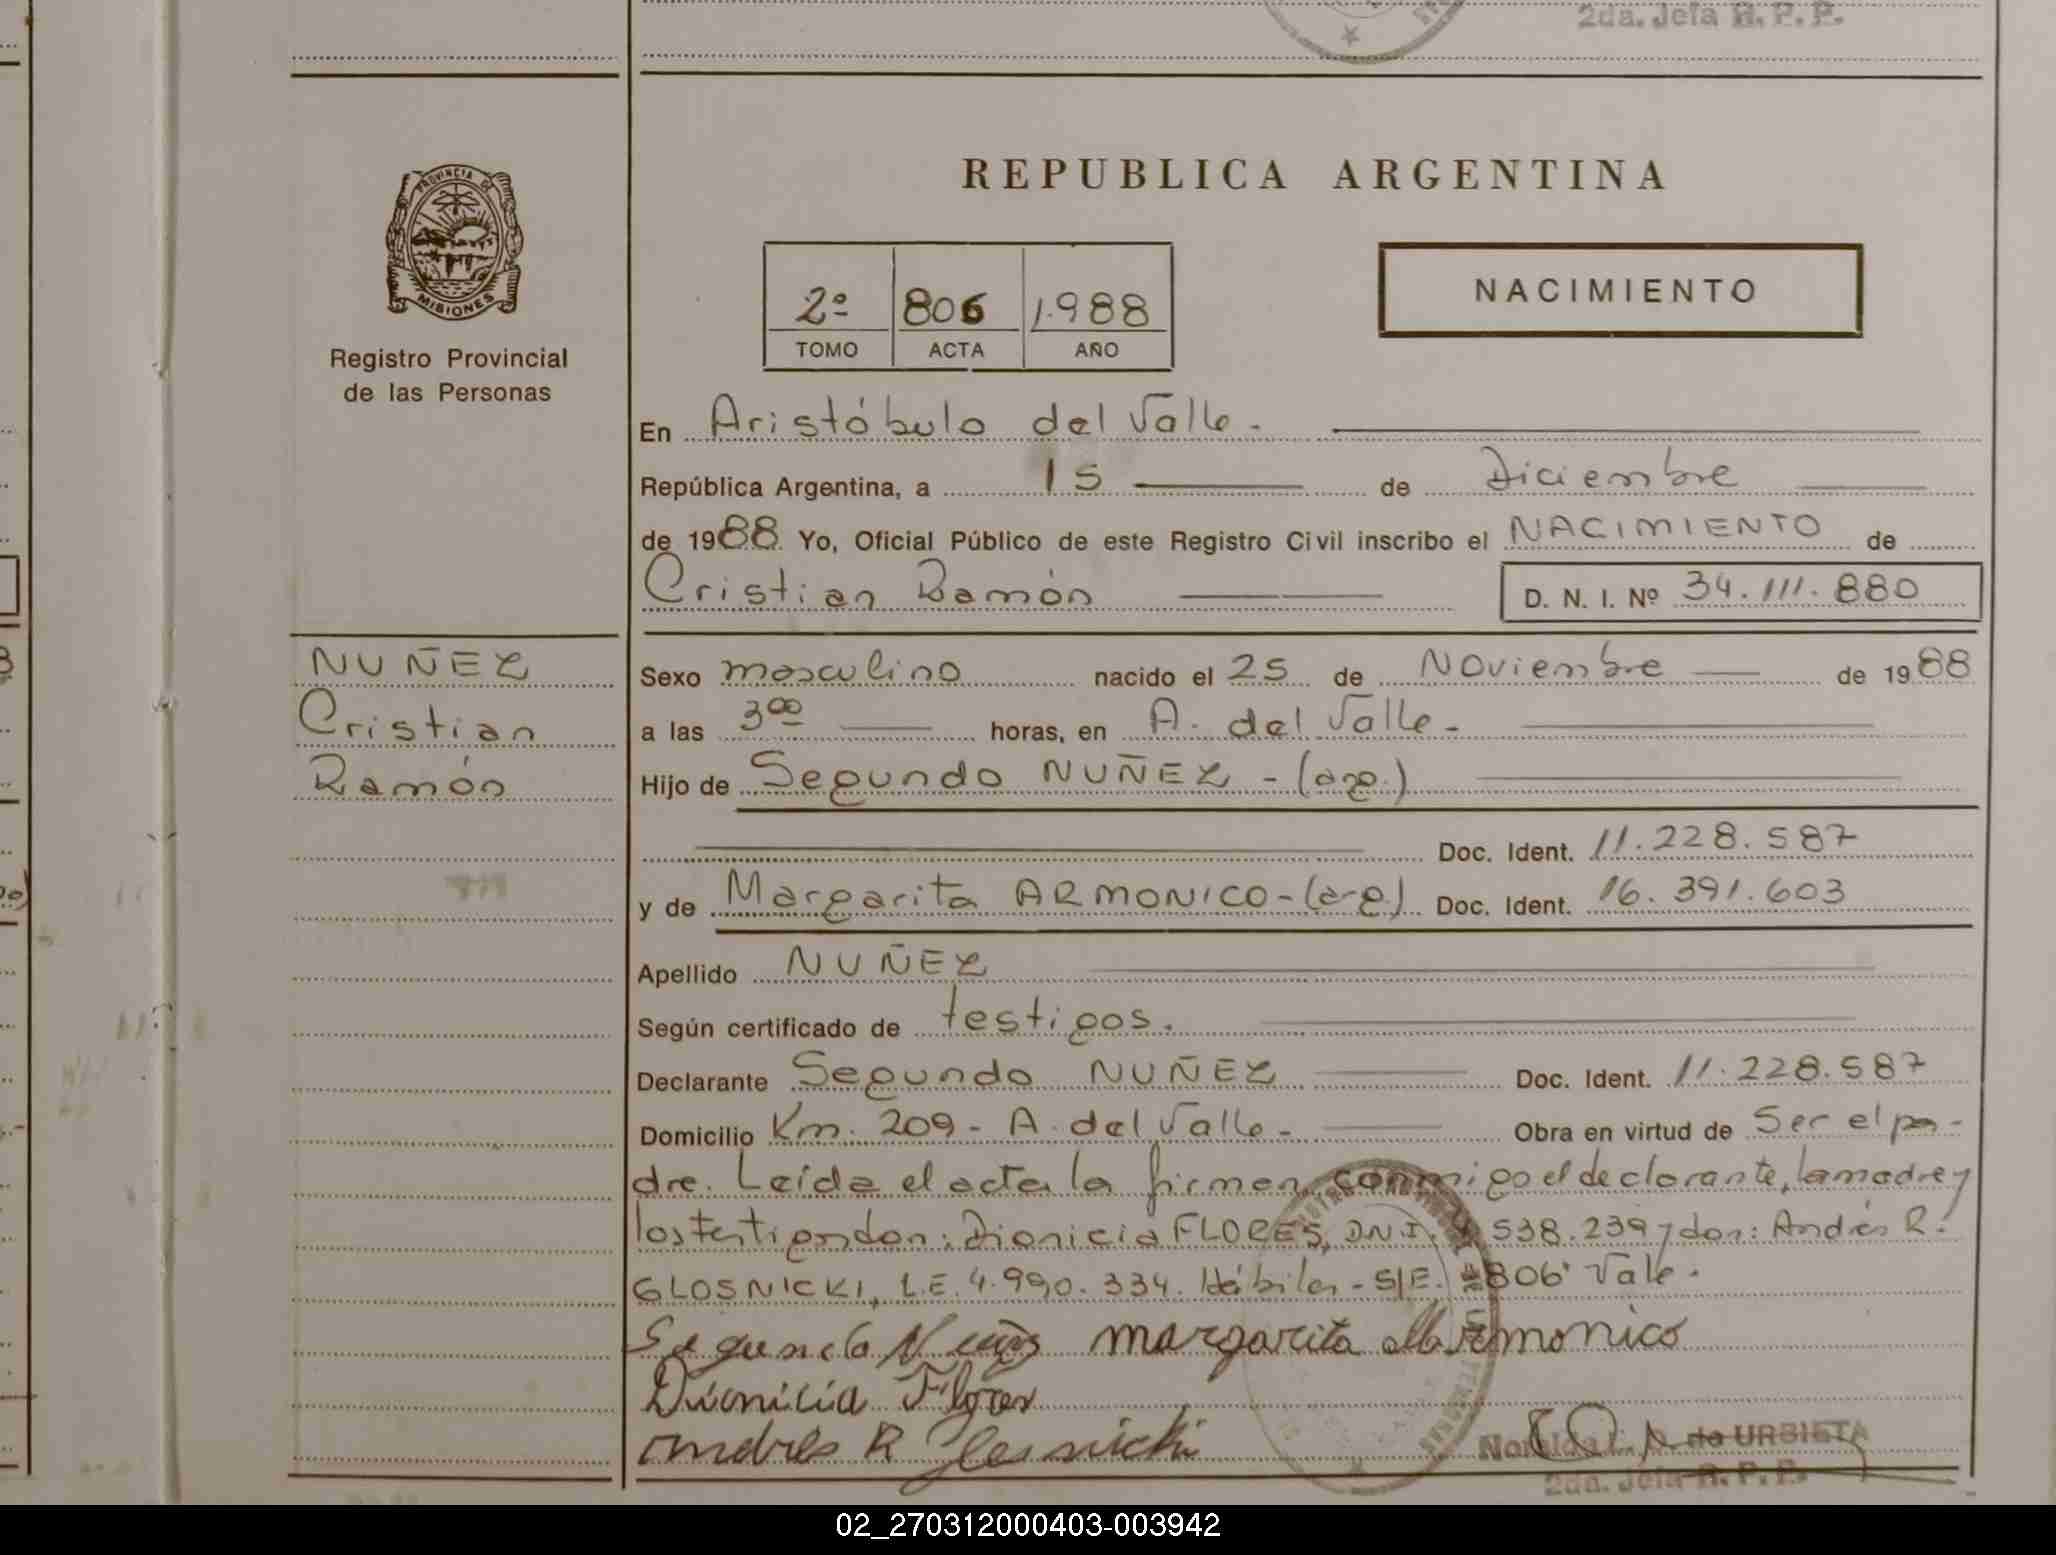 2da. Jefa R. P. P.
PROVINCIA DE
MISIONES
Registro Provincial
de las Personas
REPUBLICA ARGENTINA
2º 806 1.988
TOMO ACTA AÑO
NACIMIENTO
En Aristóbulo del Valle.
República Argentina, a 15 de Diciembre
de 1988. Yo, Oficial Público de este Registro Civil inscribo el NACIMIENTO de
Cristian Ramón
D. N. I. Nº 34.111.880
NUÑEZ
Cristian
Ramón
Sexo masculino nacido el 25 de Noviembre de 1988
a las 3 00 horas, en A. del Valle.
Hijo de Segundo NUÑEZ - (arg.)
Doc. Ident. 11.228.587
y de Margarita ARMONICO - (arg.) Doc. Ident. 16.391.603
Apellido NUÑEZ
Según certificado de testigos.
Declarante Segundo NUÑEZ Doc. Ident. 11.228.587
Domicilio Km. 209 - A. del Valle - Obra en virtud de Ser el pa-
dre. Leída el acta la firman conmigo el declarante, la madre y
los testigos don: Dionicia FLORES, D.N.I. 538.239 y don: Andrés R.
GLOSNICKI, L.E. 4.990.334. Hábiles - S/E. 806 Vale.
Segundo Nuñez margarita Armonico
Dionicia Flores
andres R Glosnicki
de URBIETA
2da. Jefa R. P. P.
02_270312000403-003942